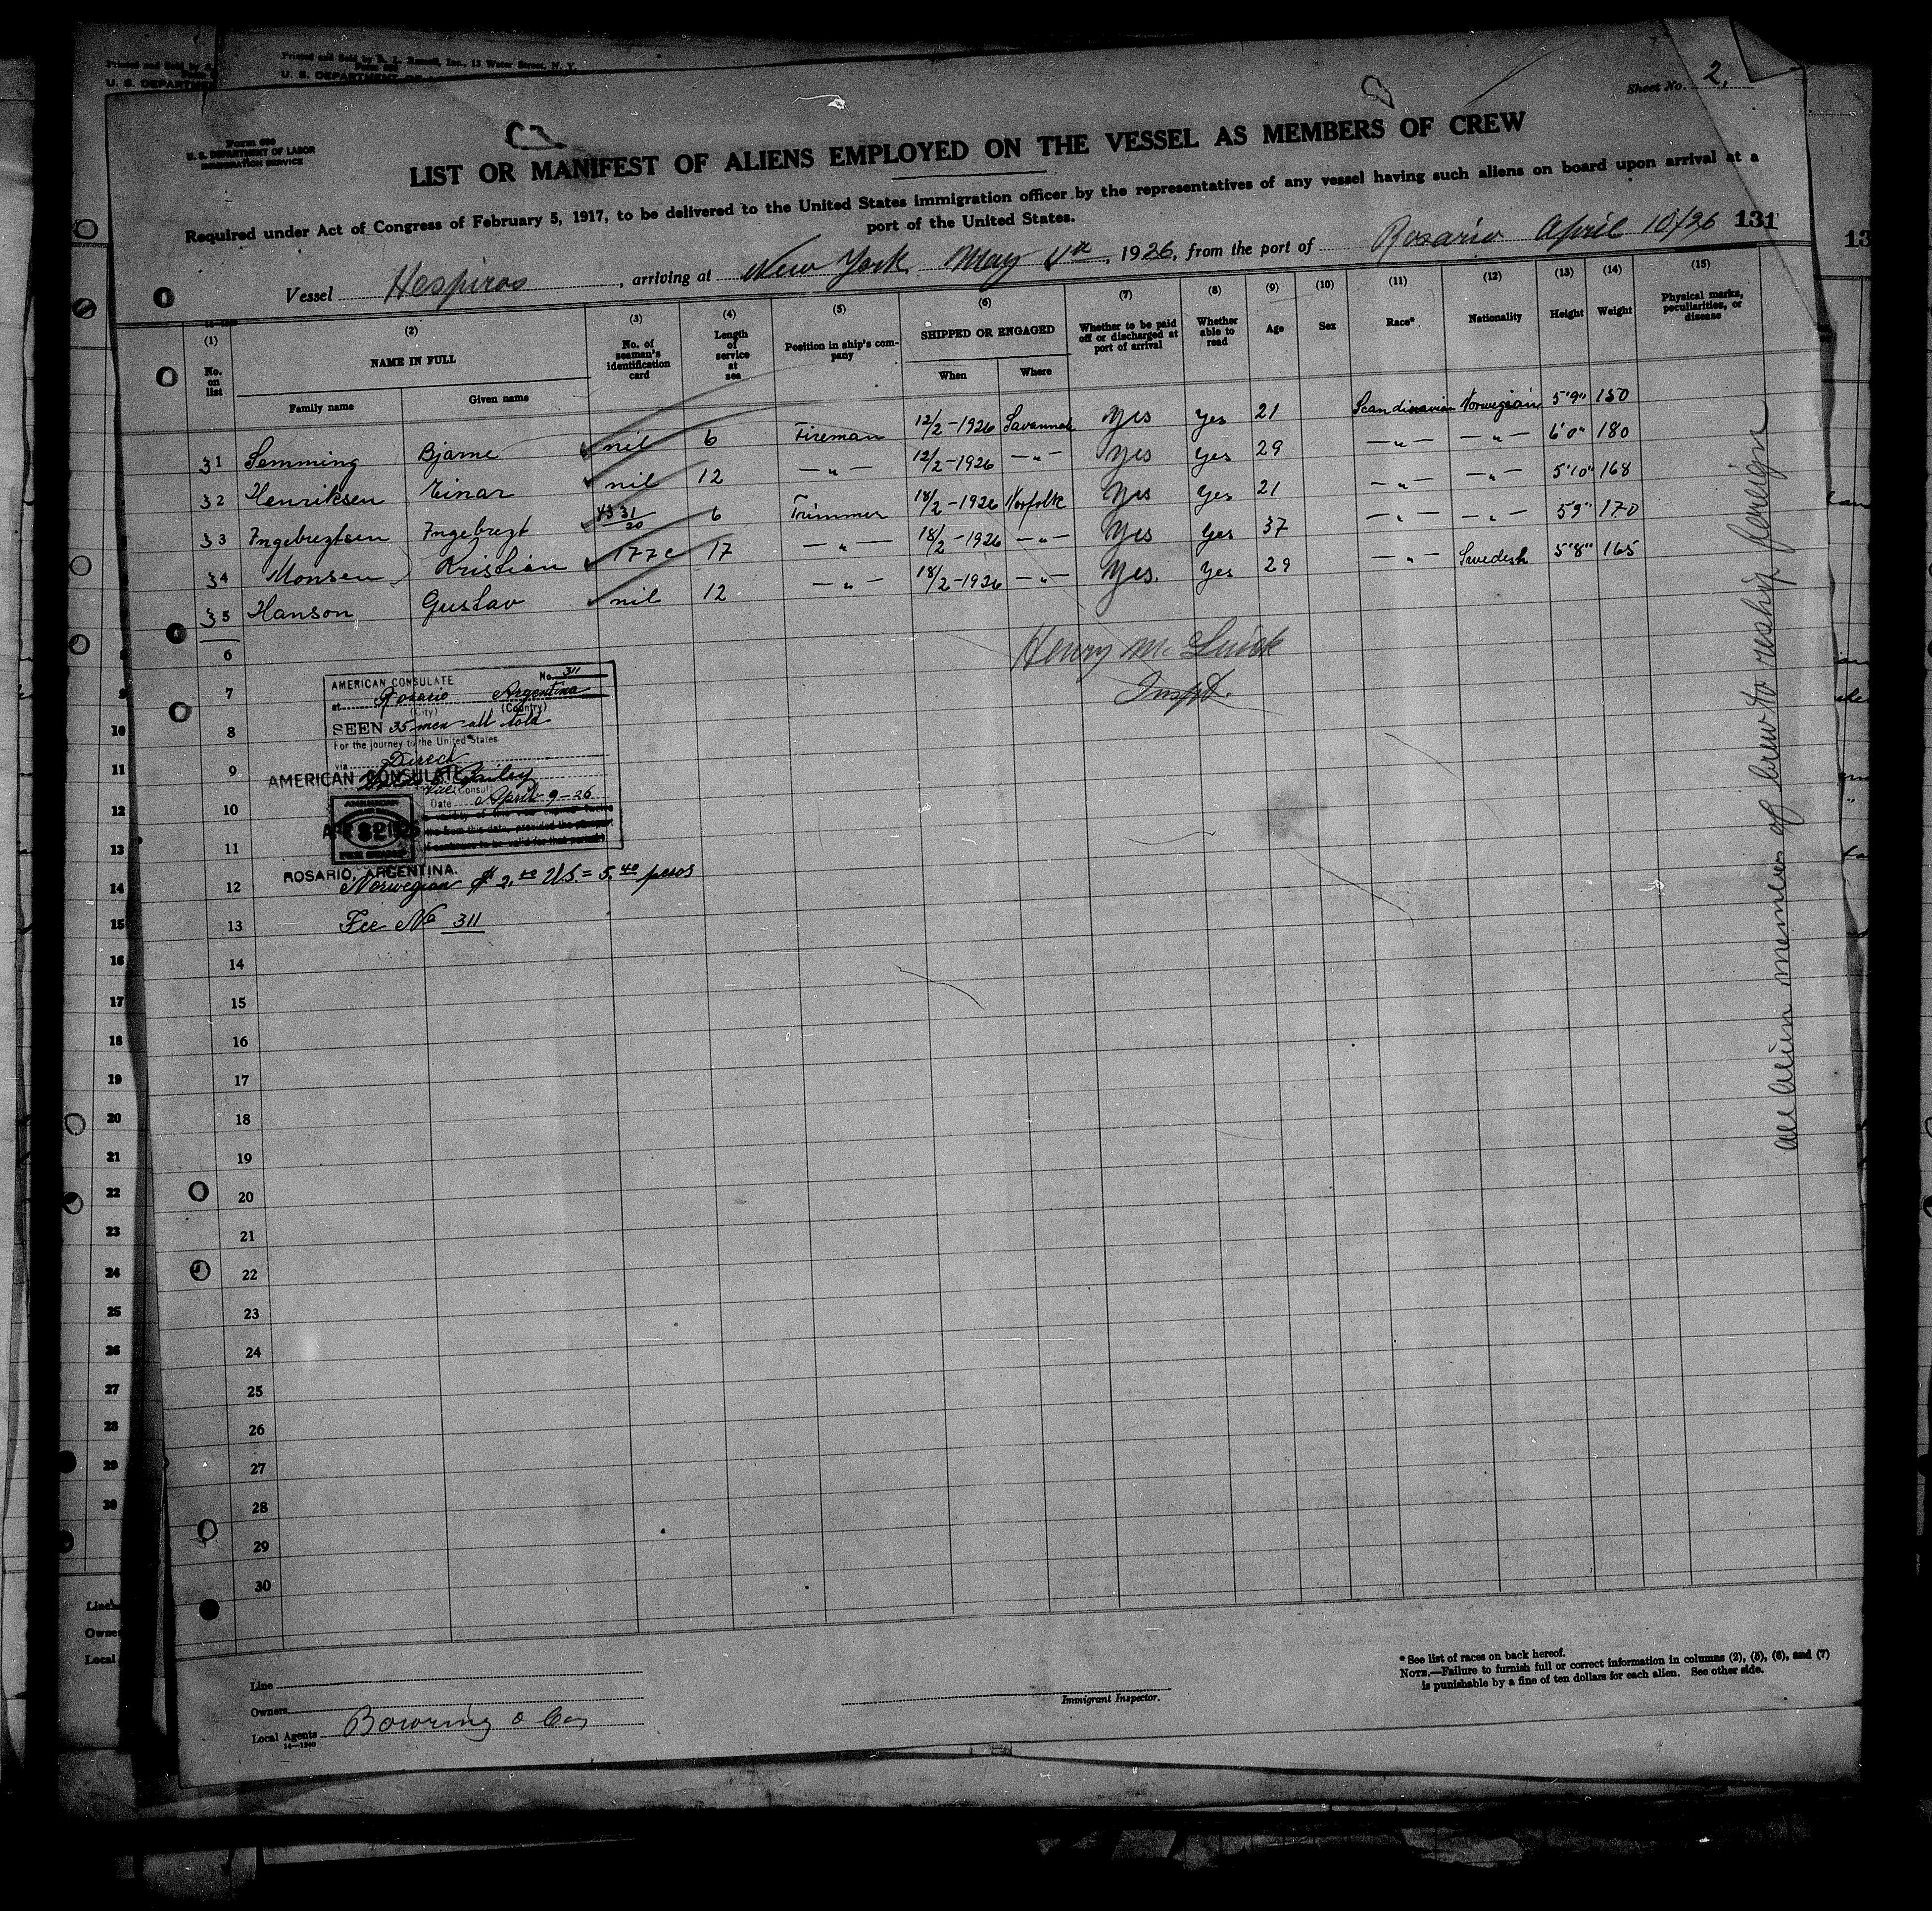 Printed and Sold by
U. S. DEPARTMENT
Printed and Sold by R. L. Inc., 12 Water Street, N. Y.
U. S. DEPARTMENT OF
Sheet No. 2.
Form 680
U. S. DEPARTMENT OF LABOR
IMMIGRATION SERVICE
LIST OR MANIFEST OF ALIENS EMPLOYED ON THE VESSEL AS MEMBERS OF CREW
Required under Act of Congress of February 5, 1917, to be delivered to the United States immigration officer by the representatives of any vessel having such aliens on board upon arrival at a
port of the United States.
131
Vessel Hespiros, arriving at New York, May, 1926, from the port of Rosario April 10/26
(1) No. on list
(2) NAME IN FULL
Family name Given name
(3) No. of seaman's identification card
(4) Length of service at sea
(5) Position in ship's company
(6) SHIPPED OR ENGAGED
When Where
(7) Whether to be paid off or discharged at port of arrival
(8) Whether able to read
(9) Age
(10) Sex
(11) Race*
(12) Nationality
(13) Height
(14) Weight
(15) Physical marks, peculiarities, or disease
31 Semming Bjarne nil 6 Fireman 12/2-1926 Savannah Yes Yes 21 Scandinavian Norwegian 5'9" 150
32 Henriksen Einar nil 12 —"— 12/2-1926 —"— Yes Yes 29 —"— —"— 6'0" 180
33 Ingebregtsen Ingebregt 6 Trimmer 18/2-1926 Norfolk Yes Yes 21 —"— —"— 5'10" 168
34 Monsen Kristian 17 —"— 18/2-1926 —"— Yes Yes 37 —"— —"— 5'9" 170
35 Hanson Gustav nil 12 —"— 18/2-1926 —"— Yes. Yes 29 —"— Swedesh 5'8" 165
Henry
Inspt.
All alien members of crew to reship foreign
AMERICAN CONSULATE No. 311
at Rosario Argentina
(City) (Country)
SEEN 35 men all told
For the journey to the United States
via Direct
AMERICAN CONSULATE
Vice Consul
Date April 9-26
ROSARIO, ARGENTINA.
Norwegian $ 2.00 U.S. = 5.40 pesos
Fee No 311
6
7
8
9
10
11
12
13
14
15
16
17
18
19
20
21
22
23
24
25
26
27
28
29
30
Line
Owners
Local Agents Bowring & Co,
Immigrant Inspector.
* See list of races on back hereof.
NOTE.—Failure to furnish full or correct information in columns (2), (5), (6), and (7)
is punishable by a fine of ten dollars for each alien. See other side.